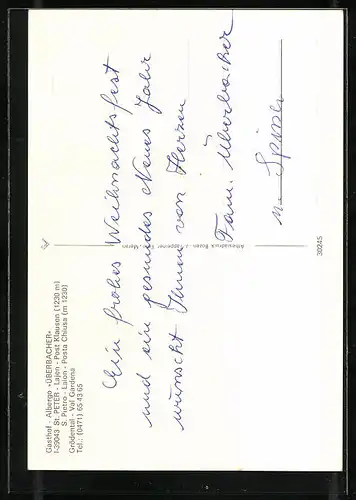 Gasthof - Albergo «ÜBERBACHER»
I-39043 St. PETER - Lajen - Post Klausen (1230 m)
S. Pietro - Laion - Posta Chiusa (m 1230)
Grödental - Val Gardena
Tel.: (0471) 65 43 65
Ein frohes Weihnachtsfest
und ein gesundes Neues Jahr
wünscht Ihnen von Herzen
Fam. Überbacher
30245